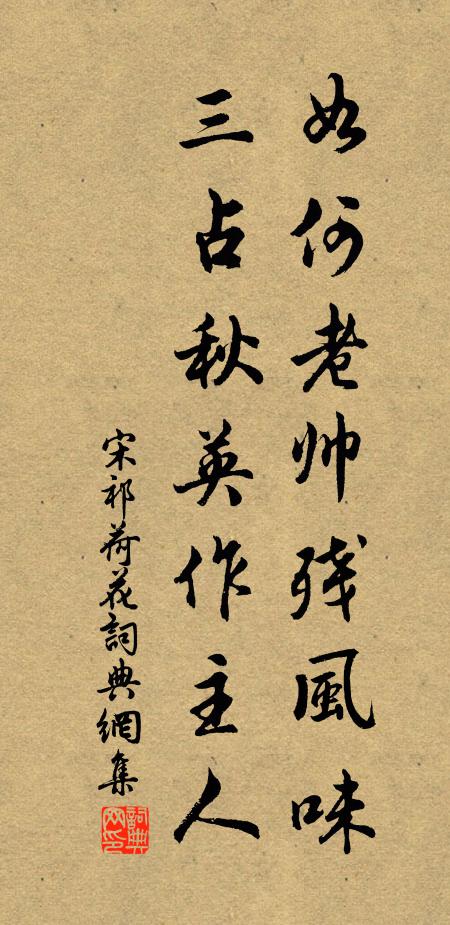 如何老帅残風味
三占秋英作主人
宋祁荷花詞典網集
詞典网印